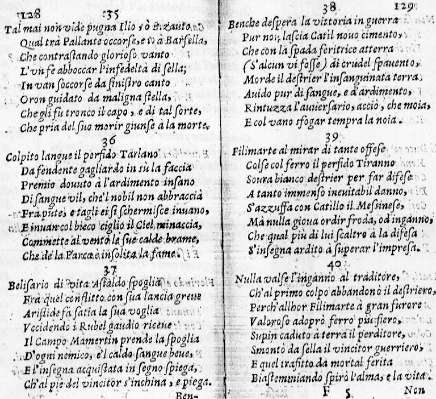 128 35
Tal mai non vide pugna Ilio, o Bizanto
Qual trà Pallante occorse, e trà Barsella,
Che contrastando glorioso vanto
L'vn fe abboccar l'infedeltà di sella;
In van soccorse da sinistro canto
Oron guidato da maligna stella,
Che gli fù tronco il capo, e di tal sorte,
Che pria del suo morir giunse à la morte.
36
Colpito langue il perfido Tarlano
Da fendente gagliardo in sù la faccia
Premio douuto à l'ardimento insano
Di sangue vil, che'l nobil non abbraccia
Frà pute, e tagli ei si schermisce inuano,
E inuan col bieco ciglio il Ciel minaccia,
Commette al vento le sue calde brame,
Che de la Parca è insolita la fame.
37
Belisario di vita Astaldo spoglia
Frà quel conflitto con sua lancia greue
Aristide fà satia la sua voglia
Vccidendo i Rubel gaudio riceue
Il Campo Mamertin prende la spoglia
D'ogni nemico, e'l caldo sangue beue,
E l'insegna acquistata in segno spiega,
Ch'al piè del vincitor s'inchina, e piega.
Ben-
38 129
Benche despera la vittoria in guerra
Pur non lascia Catil nouo cimento,
Che con la spada feritrice atterra
(S'alcun vi fosse) di crudel spauento,
Morde il destrier l'insanguinata terra,
Auido pur di sangue, e d'ardimento,
Rintuzza l'auuersario, acciò, che moia,
E col vano sfogar tempra la noia.
39
Filimarte al mirar di tante offese
Colse col ferro il perfido Tiranno
Soura bianco destrier per far difese
A tanto immenso ineuitabil danno,
S'azzuffa con Catillo il Mesinese,
Mà nulla gioua ordir froda, od inganno,
Che qual più di lui scaltro à la difesa
S'insegna ardito à superar l'impresa.
40
Nulla valse l'inganno al traditore,
Ch'al primo colpo abbandonò il destriero,
Perch'allhor Filimarte à gran furore
Valoroso adoprò ferro più fiero,
Supin caduto à terra il perditore,
Smontò da sella il vincitor guerriero,
E quel trafitto da mortal ferita
Biastemmiando spirò l'alma, e la vita.
F 5 Non